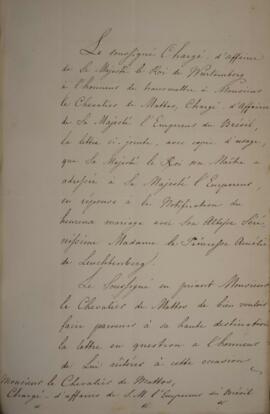 Le soussigné Chargé d'affaires
de Sa Majesté le Roi de Wurtemberg
a l'honneur de transmettre à Monsieur
le Chevalier de Mattos, Chargé d'Affaires
de Sa Majesté l'Empereur du Brésil,
la lettre ci-jointe, avec copie d'usage,
que Sa Majesté le Roi son Maître a
adressée à Sa Majesté l'Empereur,
en réponse à la Notification du
heureux mariage avec Son Altesse Séré-
nissime Madame la Princesse Amélie
de Leuchtenberg.
Le Soussigné en priant Monsieur
le Chevalier de Mattos de bien vouloir
faire parvenir à sa haute destination
la lettre en question a l'honneur
de Lui réitérer à cette occasion
Monsieur le Chevalier de Mattos,
Chargé d'affaires de S. M. l'Empereur du Brésil